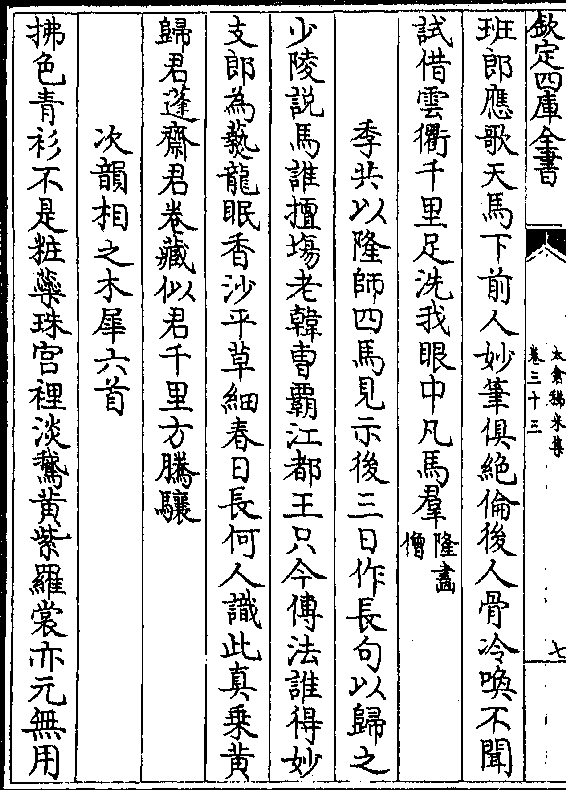 欽定四庫全書
太倉稊米集
卷三十三
七
班郎應歌天馬下前人妙筆俱絶倫後人骨冷喚不聞
試借雲衢千里足洗我眼中凡馬羣隆畫
僧
季共以隆師四馬見示後三日作長句以歸之
少陵説馬誰擅塲老韓曺霸江都王只今傳法誰得妙
支郎為爇龍眠香沙平草細春日長何人識此真乗黄
歸君蓬齋君卷藏似君千里方騰驤
次韻相之木犀六首
拂色青衫不是粧蘂珠宮裡淡鵝黄紫羅裳亦元無用